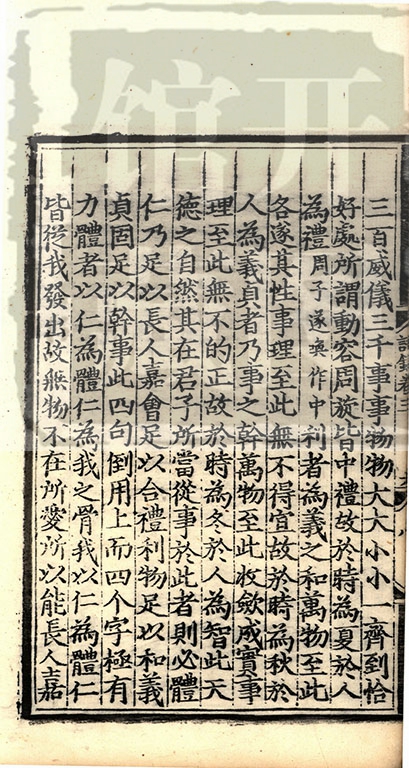 三百威儀三千事事物物大大小小一齊到恰
好處所謂動容周旋皆中禮故於時為夏於人
為禮周子遂喚作中利者為義之和萬物至此
各遂其性事理至此無不得宜故於時為秋於
人為義貞者乃事之幹萬物至此收斂成實事
理至此無不的正故於時為冬於人為智此天
德之自然其在君子所當從事於此者則必體
仁乃足以長人嘉會足以合禮利物足以和義
貞固足以幹事此四句倒用上面四个字極有
力體者以仁為體仁為我之骨我以仁為體仁
皆從我發出故無物不在所愛所以能長人嘉
开
馆